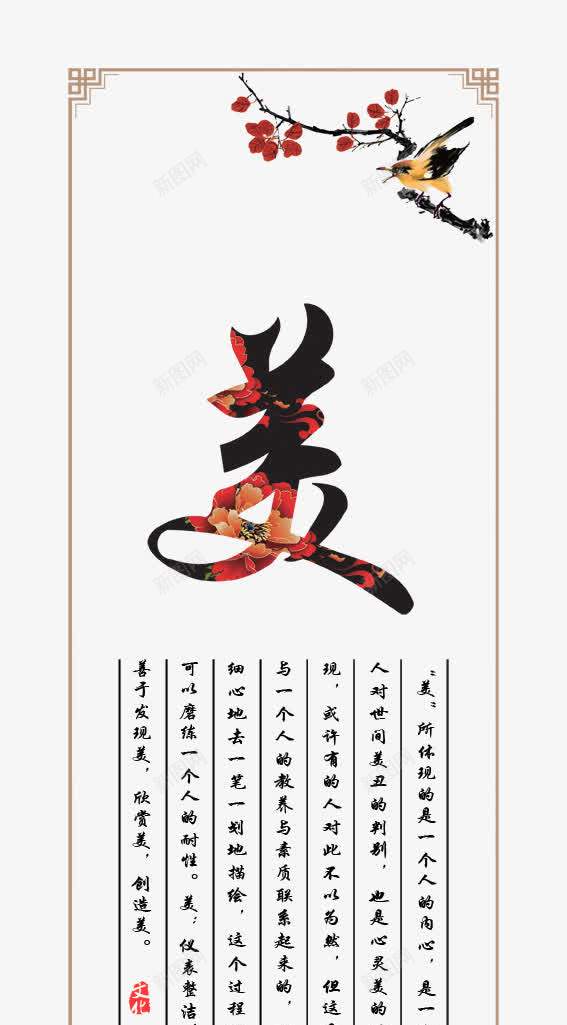 美
“美”所体现的是一个人的内心，是一
人对世间美丑的判别，也是心灵美的
现，或许有的人对此不以为然，但这
与一个人的教养与素质联系起来的，
细心地去一笔一划地描绘，这个过程
可以磨练一个人的耐性。美：仪表整洁
善于发现美，欣赏美，创造美。
文化
新图网